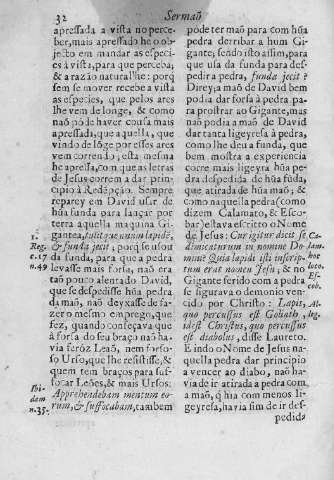 32
Sermaõ
apressada a vista no perce-
ber, mais apressado he o ob-
jecto em mandar as especi-
es à vista, para que perceba;
& a razão natural he: porq̃
sem se mover recebe a vista
as especies, que pelos ares
lhe vem de longe, & como
naõ póde haver cousa mais
apressada, que aquella, que
vindo de lõge por esses ares
vem correndo; esta mesma
he apressa, com que as letras
de Jesus correm a dar prin-
cipio à Redẽpção. Sempre
reparey em David usar de
hũa funda para lançar por
terra aquella maquina Gi-
gantea, tulit que unum lapidẽ,
& funda jecit, porq̃ se usou
da funda, para que a pedra
levasse mais forsa, naõ era
taõ pouco alentado David,
que se despedisse hũa pedra
da maõ, naõ deyxasse de fa-
zer o mesmo emprego, que
fez, quando confeçava que
à forsa do seu braço naõ ha-
via feróz Leaõ, nem forso-
so Urso, que lhe resistisse, &
quem tem braços para suf-
focar Leões, & mais Ursos:
Apprehendebam mentum eo-
rum, & suffocabam, tambem
1.
Reg.
c. 17
n. 49
Ibi-
dem
n. 35.
pode ter maõ para com hũa
pedra derribar a hum Gi-
gante; sendo isto assim, para
que usa da funda para des-
pedir a pedra, funda jecit?
Direy; a maõ de David bem
podia dar forsa à pedra pa-
ra prostrar ao Gigante, mas
naõ podia a maõ de David
dar tanta ligeyresa à pedra,
como lhe deu a funda, que
bem mostra a experiencia
corre mais ligeyra hũa pe-
dra despedida de hũa funda,
que atirada de hũa maõ; &
como naquella pedra (como
dizem Calamato, & Esco-
bar) estava escrito o Nome
de Jesus: Cur igitur dicit se
in nomine Do-
minẽ Quia lapidi isti inscrip-
tum erat nomen Jesu; & no
Gigante ferido com a pedra
se figurava o demonio ven-
cido por Christo: Lapis,
quo percussus est Goliath,
idest Christus, quo percussus
est diabolus, disse Laureto.
E indo o Nome de Jesus na-
quella pedra dar principio
a vencer ao diabo, naõ ha-
via de ir atirada a pedra com
a maõ, q̃ hia com menos li-
geyresa, havia sim de ir des-
pedida
Ca-
lam.
hoc
loco.
Es-
cob.
Al-
leg.